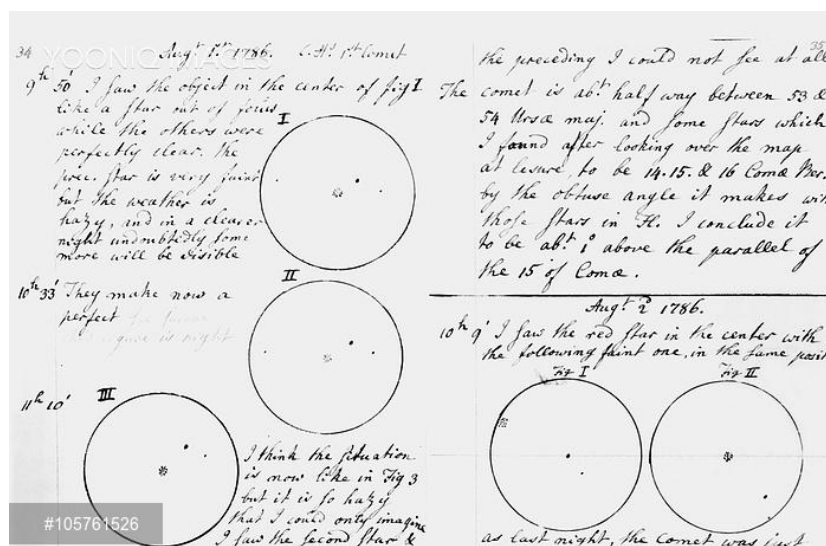 34
YOONIQ IMAGES
Augt 1st 1786. C.H's 1st Comet
9h 50' I saw the object in the center of fig I
like a star out of focus
while the others were
perfectly clear. the
prec. star is very faint
but the weather is
hazy, and in a clearer
night undoubtedly some
more will be visible
I
II
10h 33' They make now a
perfect
figure is night
11h 10'
III
I think the situation
is now like in Fig 3
but it is so hazy
that I could only imagine
I saw the second star &
#105761526
35
the preceding I could not see at all
The comet is abt half way between 53 &
54 Ursæ maj. and some stars which
I found after looking over the map
at lesure, to be 14.15. & 16 Comæ Ber.
by the obtuse angle it makes with
those stars in Fl. I conclude it
to be abt 1° above the parallel of
the 15 of Comæ.
Augt 2d 1786.
10h 9' I saw the red star in the center with
the following faint one, in the same posit
Fig I
Fig II
as last night, the comet was just